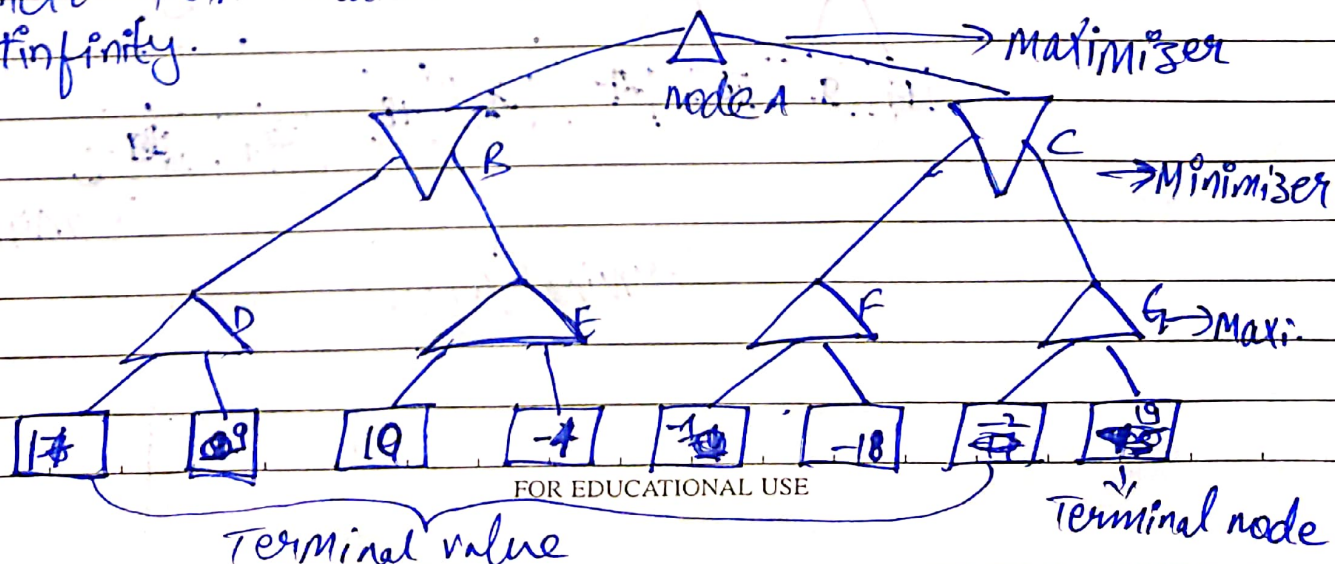 +infinity.
→ Maximizer
node A
B
C
→ Minimizer
D
E
F
G → Maxi.
9
10
-4
-1
-18
-2
19
FOR EDUCATIONAL USE
Terminal value
Terminal node